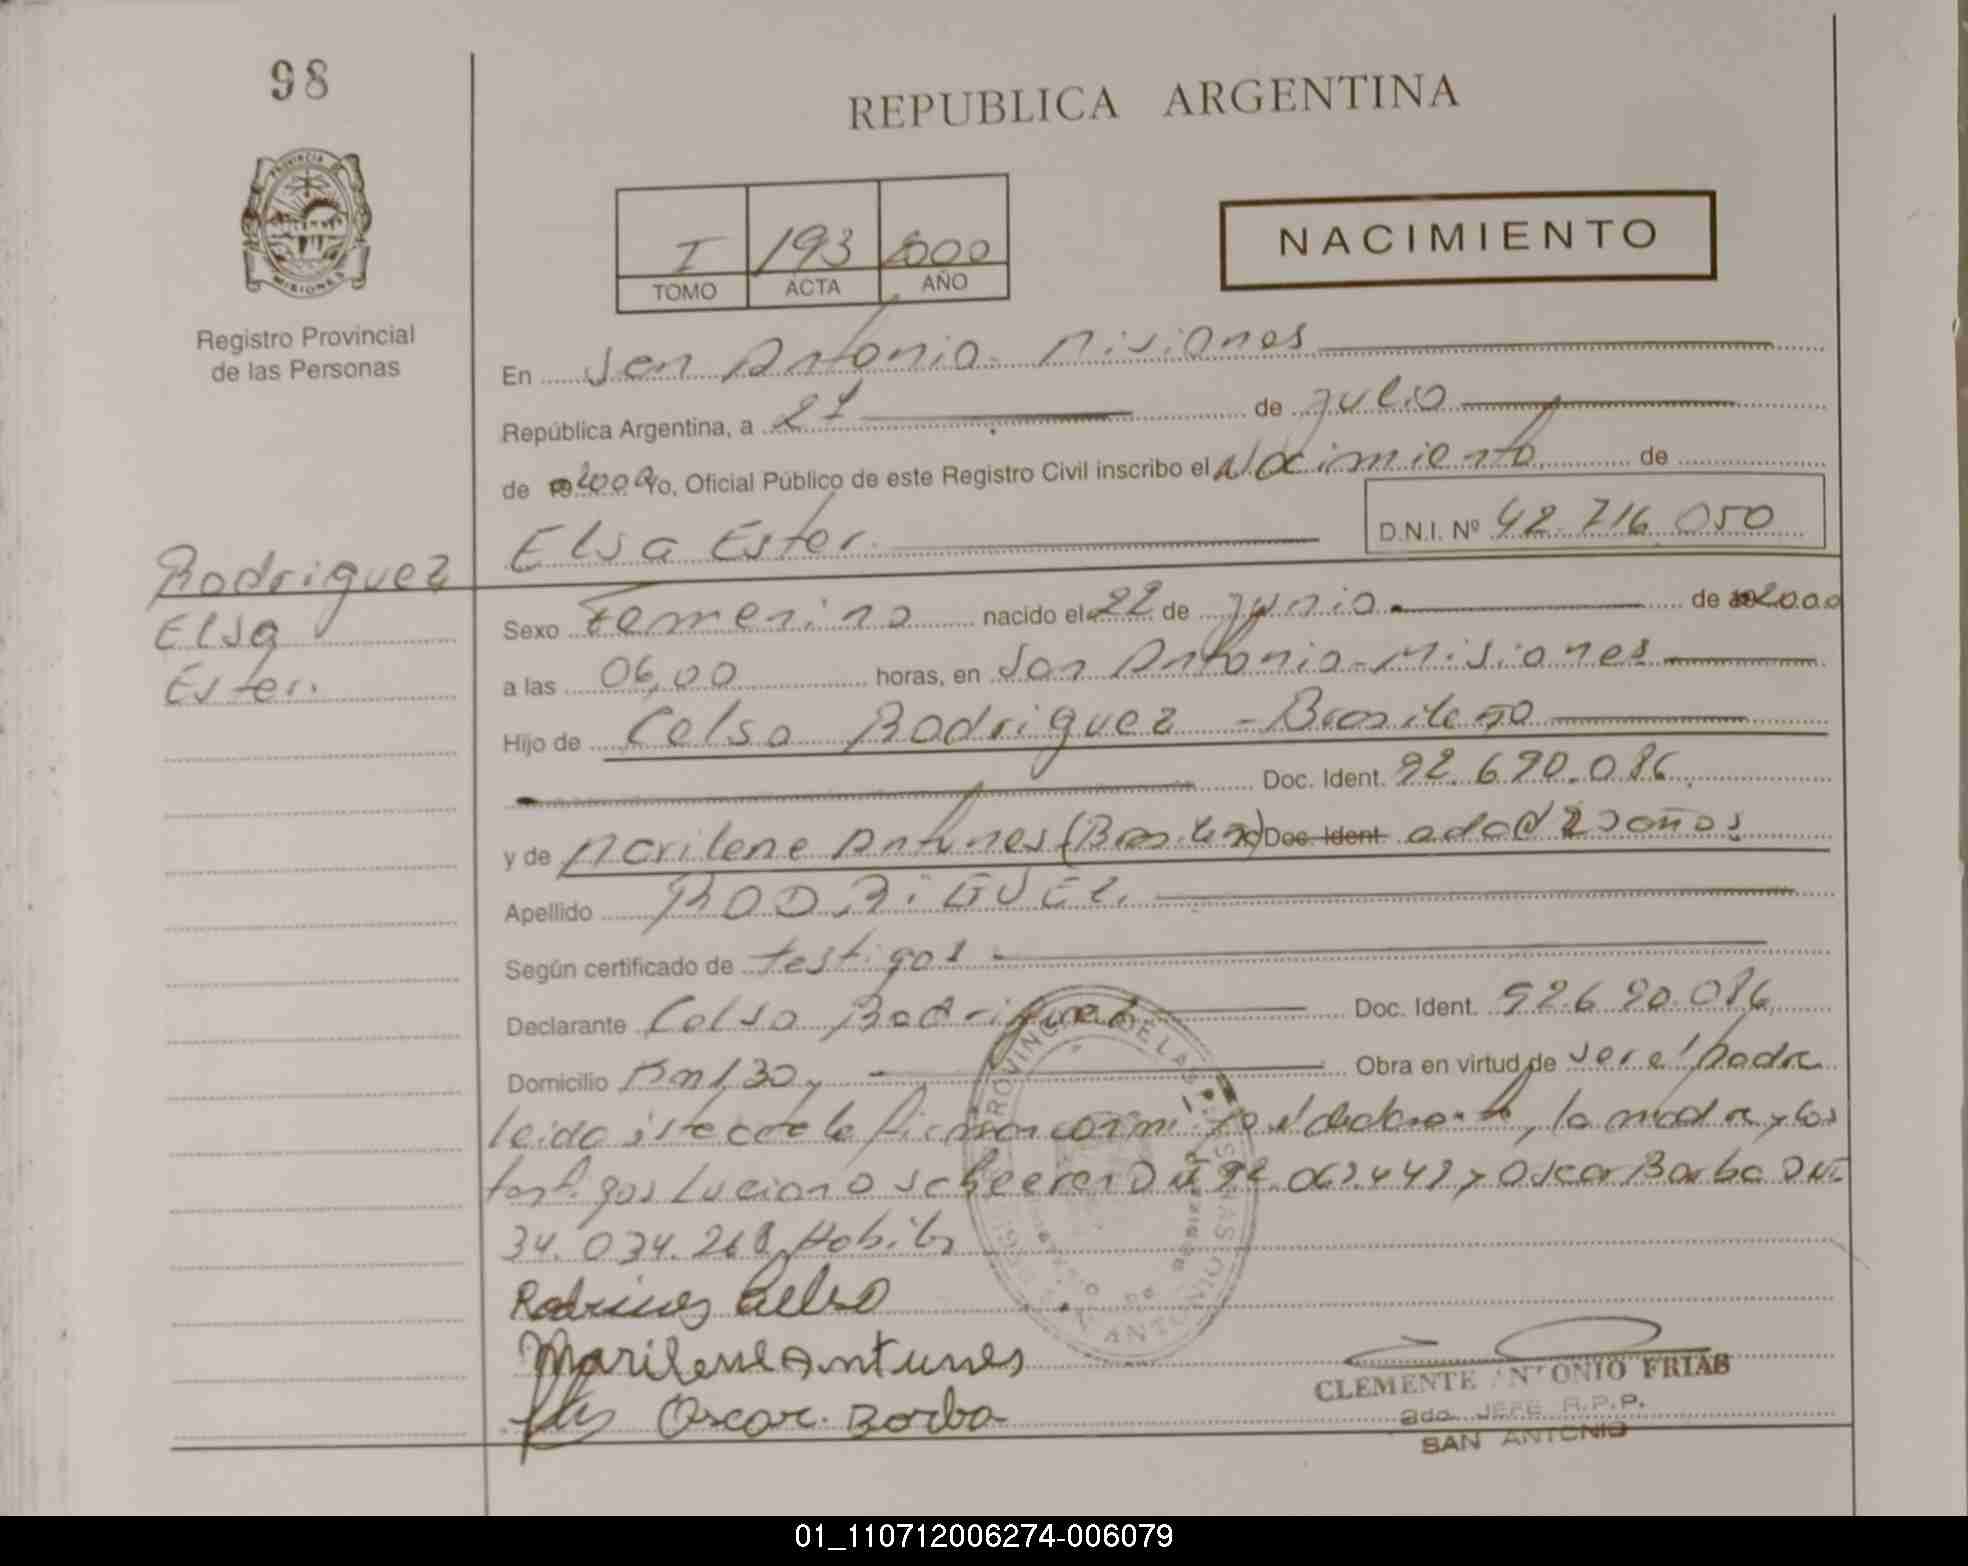 98
REPUBLICA ARGENTINA
PROVINCIA DE
MISIONES
Registro Provincial
de las Personas
I 193 2000
TOMO ACTA AÑO
NACIMIENTO
En San Antonio - Misiones
República Argentina, a 21 de Julio
de 2000 Yo, Oficial Público de este Registro Civil inscribo el Nacimiento de
Elsa Ester. D.N.I. Nº 42.716.050
Rodriguez
Elsa
Ester.
Sexo Femenino nacido el 22 de Junio de 2000
a las 06,00 horas, en San Antonio - Misiones
Hijo de Celso Rodriguez - Brasileño
Doc. Ident. 92.690.086
y de Marilene Antunes (Brasileña) Doc. Ident. edad 20 años
Apellido RODRIGUEZ.
Según certificado de testigos
Declarante Celso Rodriguez Doc. Ident. 92.690.086
Domicilio Km 130, Obra en virtud de ser el padre
leida firman conmigo el declarante, la madre y los
testigos Luciano Scheerer y Oscar Borba DNI
34.034.268
Rodrigues Celso
Marilene Antunes
Oscar. Borba
CLEMENTE ANTONIO FRIAS
2do. JEFE R.P.P.
SAN ANTONIO
01_110712006274-006079